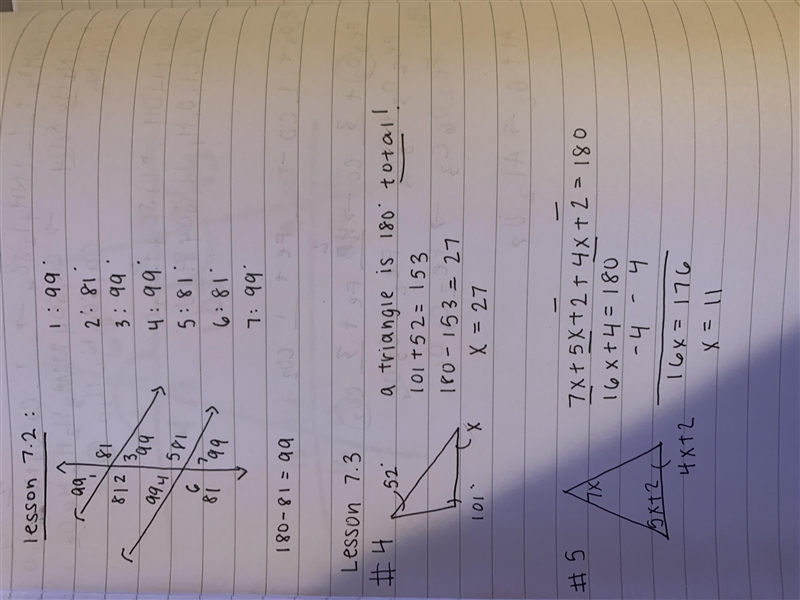 lesson 7.2:
99 1 81
81 2 3 99
99 4 5 81
6 7 99
81
1: 99°
2: 81°
3: 99°
4: 99°
5: 81°
6: 81°
7: 99°
180-81=99
Lesson 7.3
#4
52°
101°
x
a triangle is 180° total!
101+52=153
180-153=27
x=27
#5
7x
5x+2
4x+2
7x+5x+2+4x+2=180
16x+4=180
-4 -4
16x=176
x=11